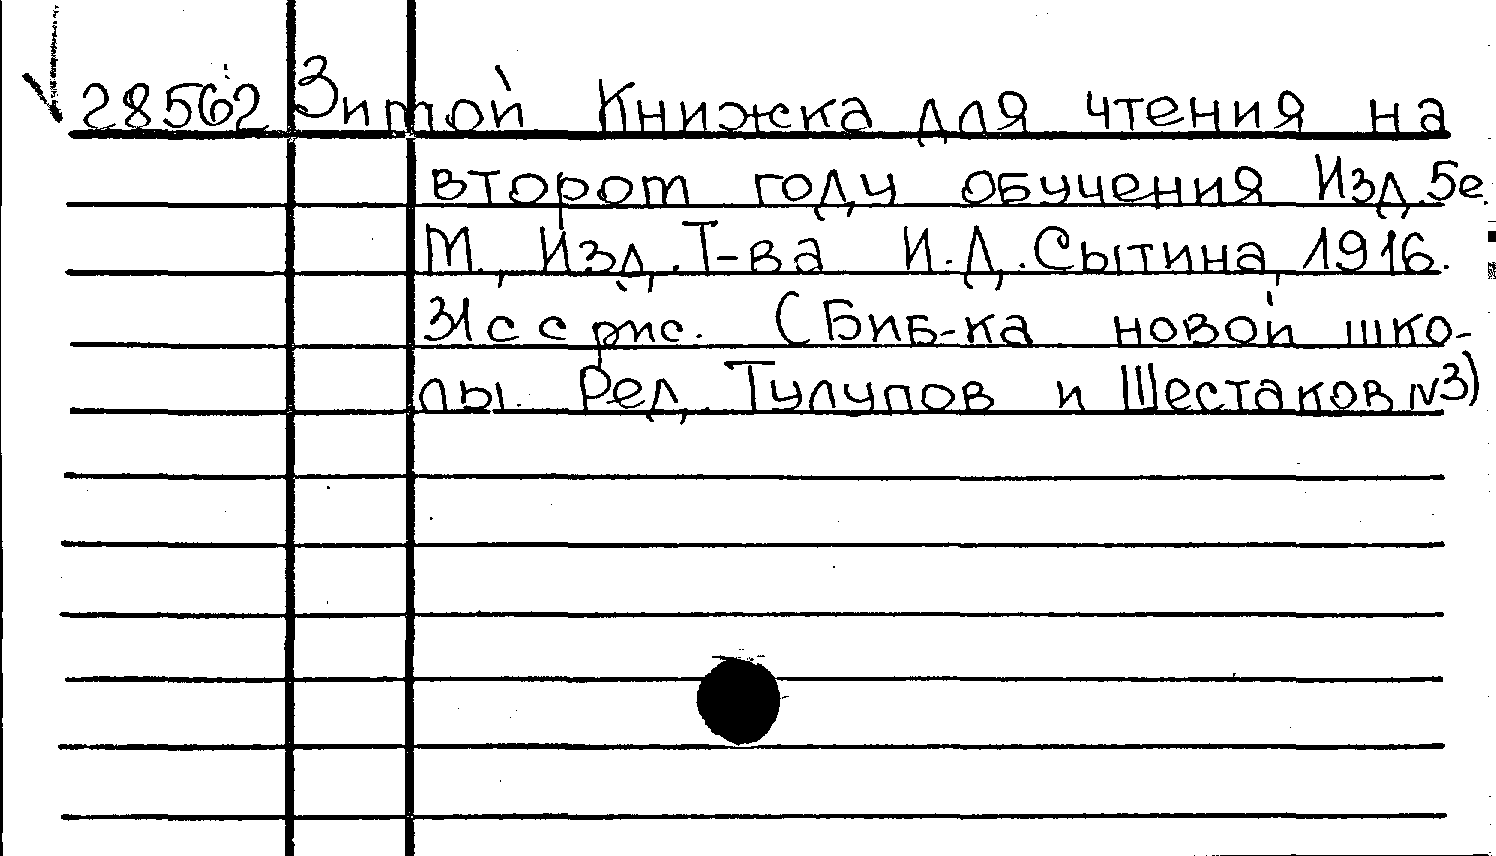 28562 Зимой Книжка для чтения на
втором году обучения Изд. 5е.
М., Изд. Т-ва И.Д. Сытина, 1916.
31 с с рис. (Биб-ка новой шко-
лы. Ред. Тулупов и Шестаков N3)